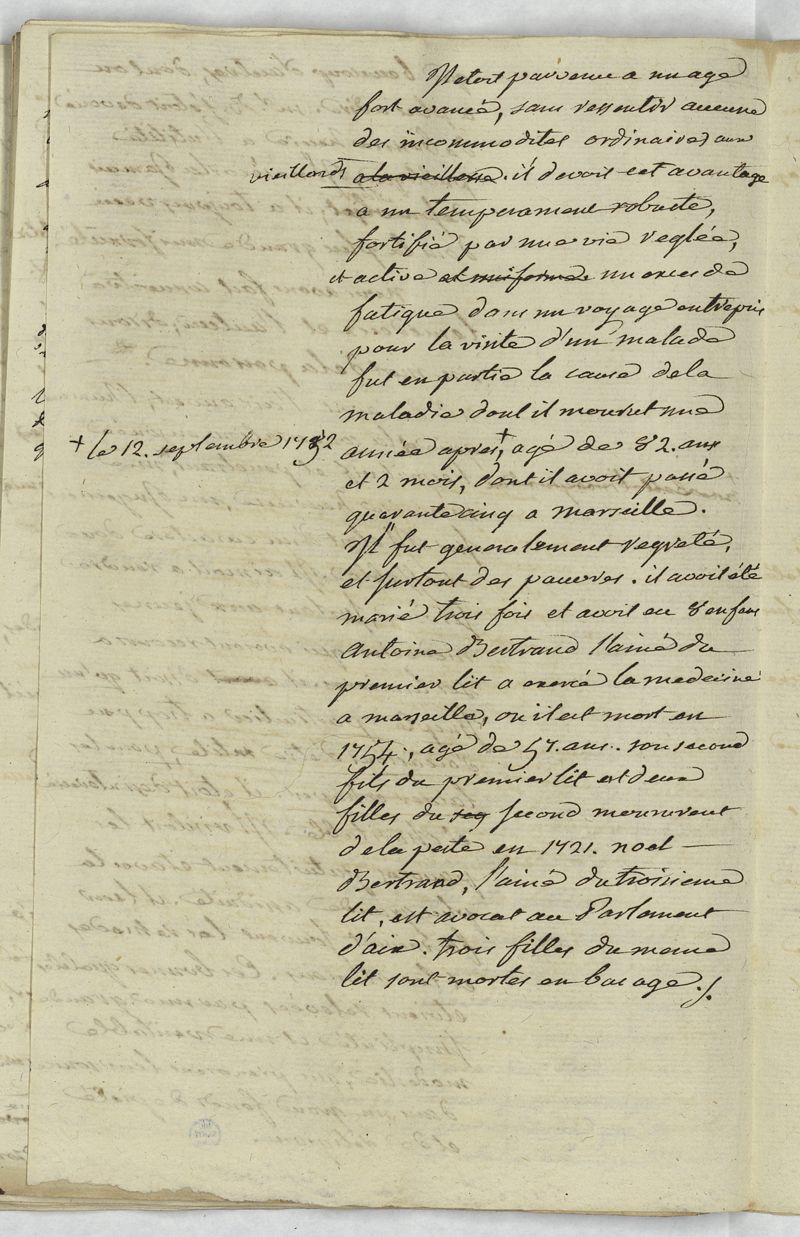 Il etoit parvenu a un age
fort avancé, sans ressentir aucune
des incommodites ordinaires aux
vieillards a la vieillesse. il devoit cet avantage
a un temperament robuste,
fortifié par une vie reglée,
et active et uniforme. un exces de
fatigue dans un voyage entrepris
pour la visite d'un malade
fut en partie la cause de la
maladie dont il mourut une
+ le 12. septembre 1752
année apres,+ agé de 82. ans
et 2 mois, dont il avoit passé
quarante cinq a marseille.
Il fut generalement regreté,
et surtout des pauvres. il avoit été
marié trois fois et avoit eu 8 enfans
Antoine Bertrand l'ainé du
premier lit a exercé la medecine
a marseille, ou il est mort en
1754., agé de 57. ans. son second
fils du premier lit et deux
filles du seg second moururent
de la peste en 1721. noel
Bertrand, l'ainé du troisieme
lit, est avocat au Parlement
d'aix. trois filles du meme
lit sont mortes en bas age./.